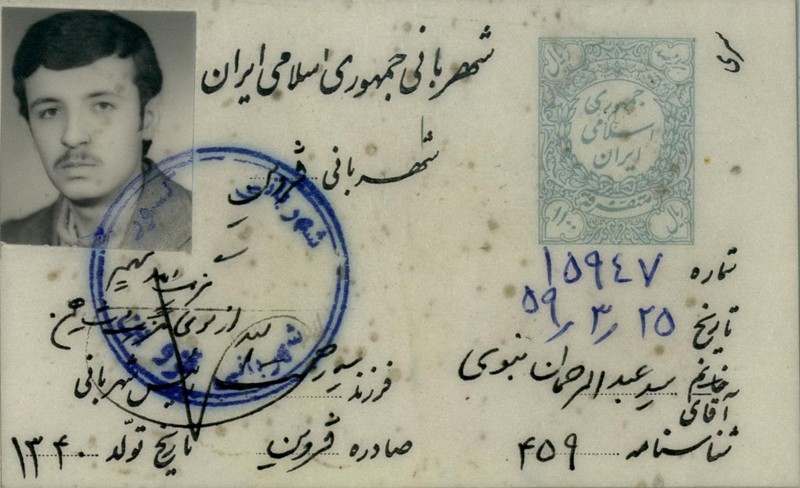 شهربانی جمهوری اسلامی ایران
سری
شهربانی قزوین
جمهوری
اسلامی
ایران
متفرقه
۱۰۰ ریال
شماره ۱۵۹۴۷
تاریخ ۵۹٫۳٫۲۵
خانم
آقای سید عبدالرحمان نبوی
فرزند سید
شناسنامه ۴۵۹
صادره قزوین
تاریخ تولّد ۱۳۴۰
رئیس شهربانی
از طرف
شهربانی